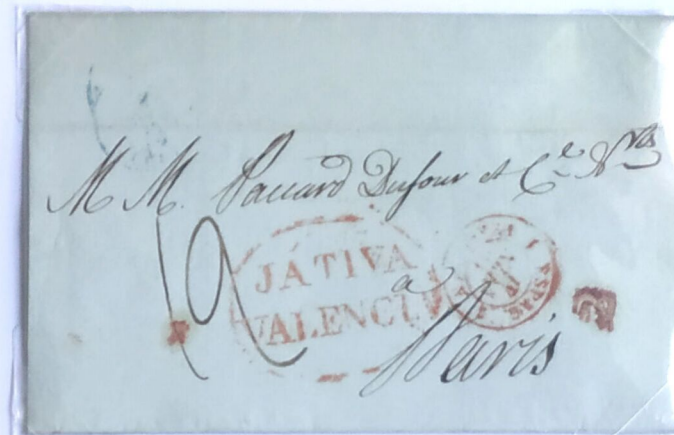 M M. Paccard Dufour et C.e N.ts
JÁTIVA
VALENCIA
à
Paris